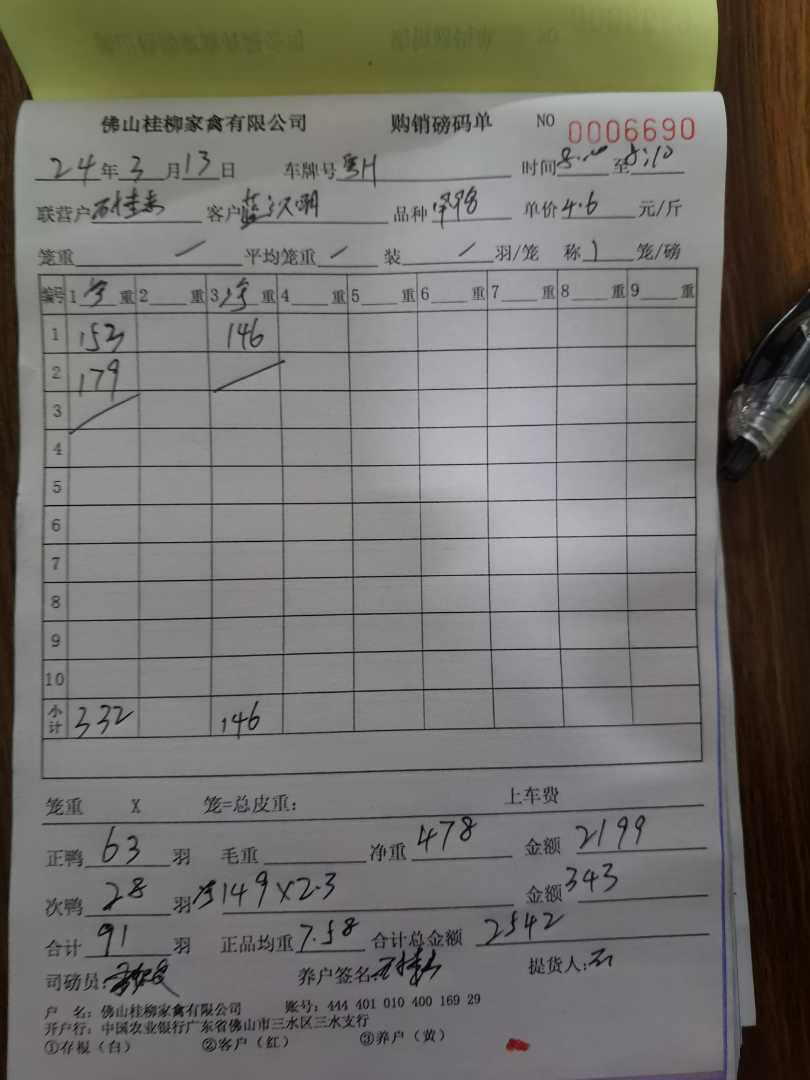 佛山桂柳家禽有限公司 购销磅码单 NO 0006690
24年3月13日 车牌号粤H 时间8:00至8:10
联营户 客户 品种 单价4.6元/斤
笼重 平均笼重 装 羽/笼 称1笼/磅
编号 1净重 2重 3净重 4重 5重 6重 7重 8重 9重
1 153 146
2 179
3
4
5
6
7
8
9
10
小计 332 146
笼重 X 笼=总皮重: 上车费
正鸭63羽 毛重 净重478 金额2199
次鸭28羽 净149×2.3 金额343
合计91羽 正品均重7.58 合计总金额2542
司磅员: 养户签名: 提货人:
户 名: 佛山桂柳家禽有限公司 账号: 444 401 010 400 169 29
开户行: 中国农业银行广东省佛山市三水区三水支行
①存根(白) ②客户(红) ③养户(黄)